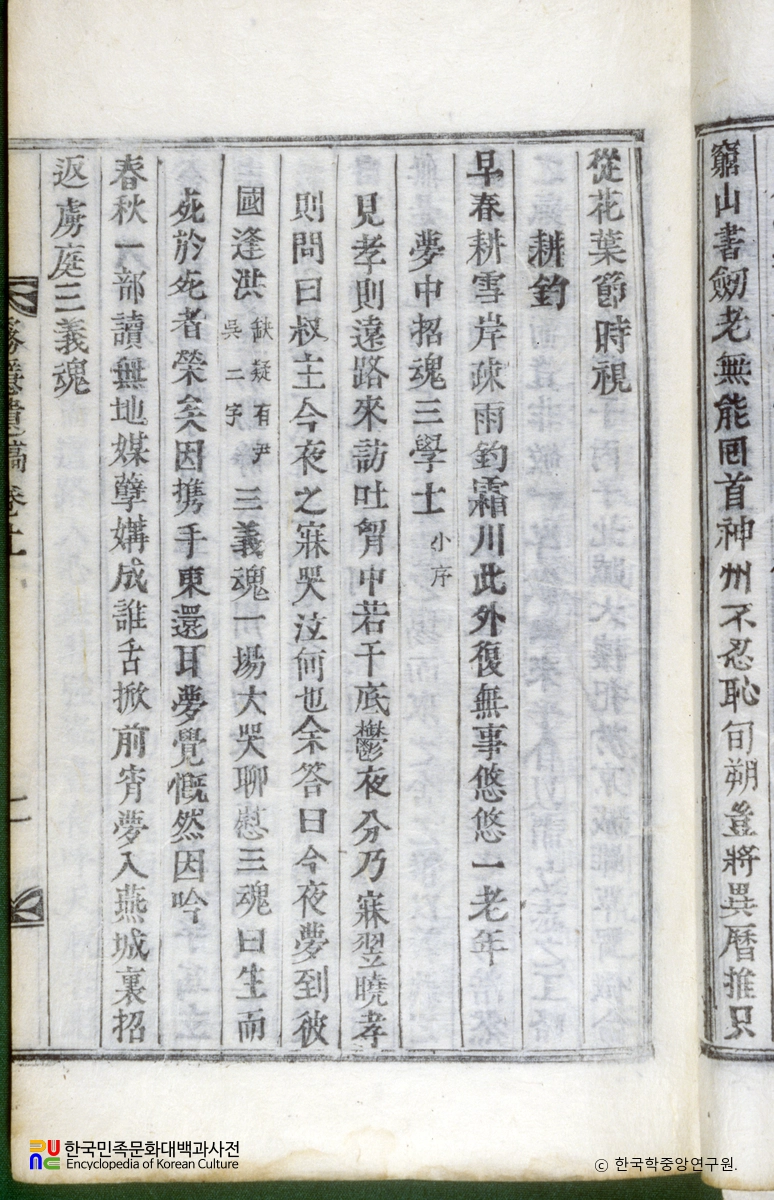 窮山書劒老無能囘首神州不忍恥旬朔豈將異曆推只
從花葉節時視
耕釣
早春耕雪岸疎雨釣霜川此外復無事悠悠一老年
夢中招魂三學士 小序
見孝則遠路來訪吐胷中若干底鬱夜分乃寐翌曉孝
則問曰叔主今夜之寐哭泣何也余答曰今夜夢到彼
國逢洪 缺疑有尹吳二字 三義魂一場大哭聊慰三魂曰生而
死於死者榮矣因携手東還耳夢覺慨然因吟
春秋一部讀無地媒孼媾成誰舌掀前宵夢入燕城裏招
返虜庭三義魂
遺稿 卷上
二
한국민족문화대백과사전
Encyclopedia of Korean Culture
© 한국학중앙연구원.